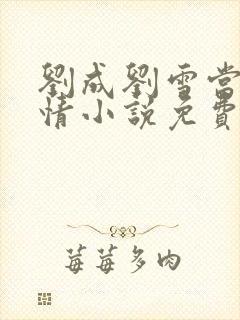 劉成劉雪當
情小說免費
莓莓多肉